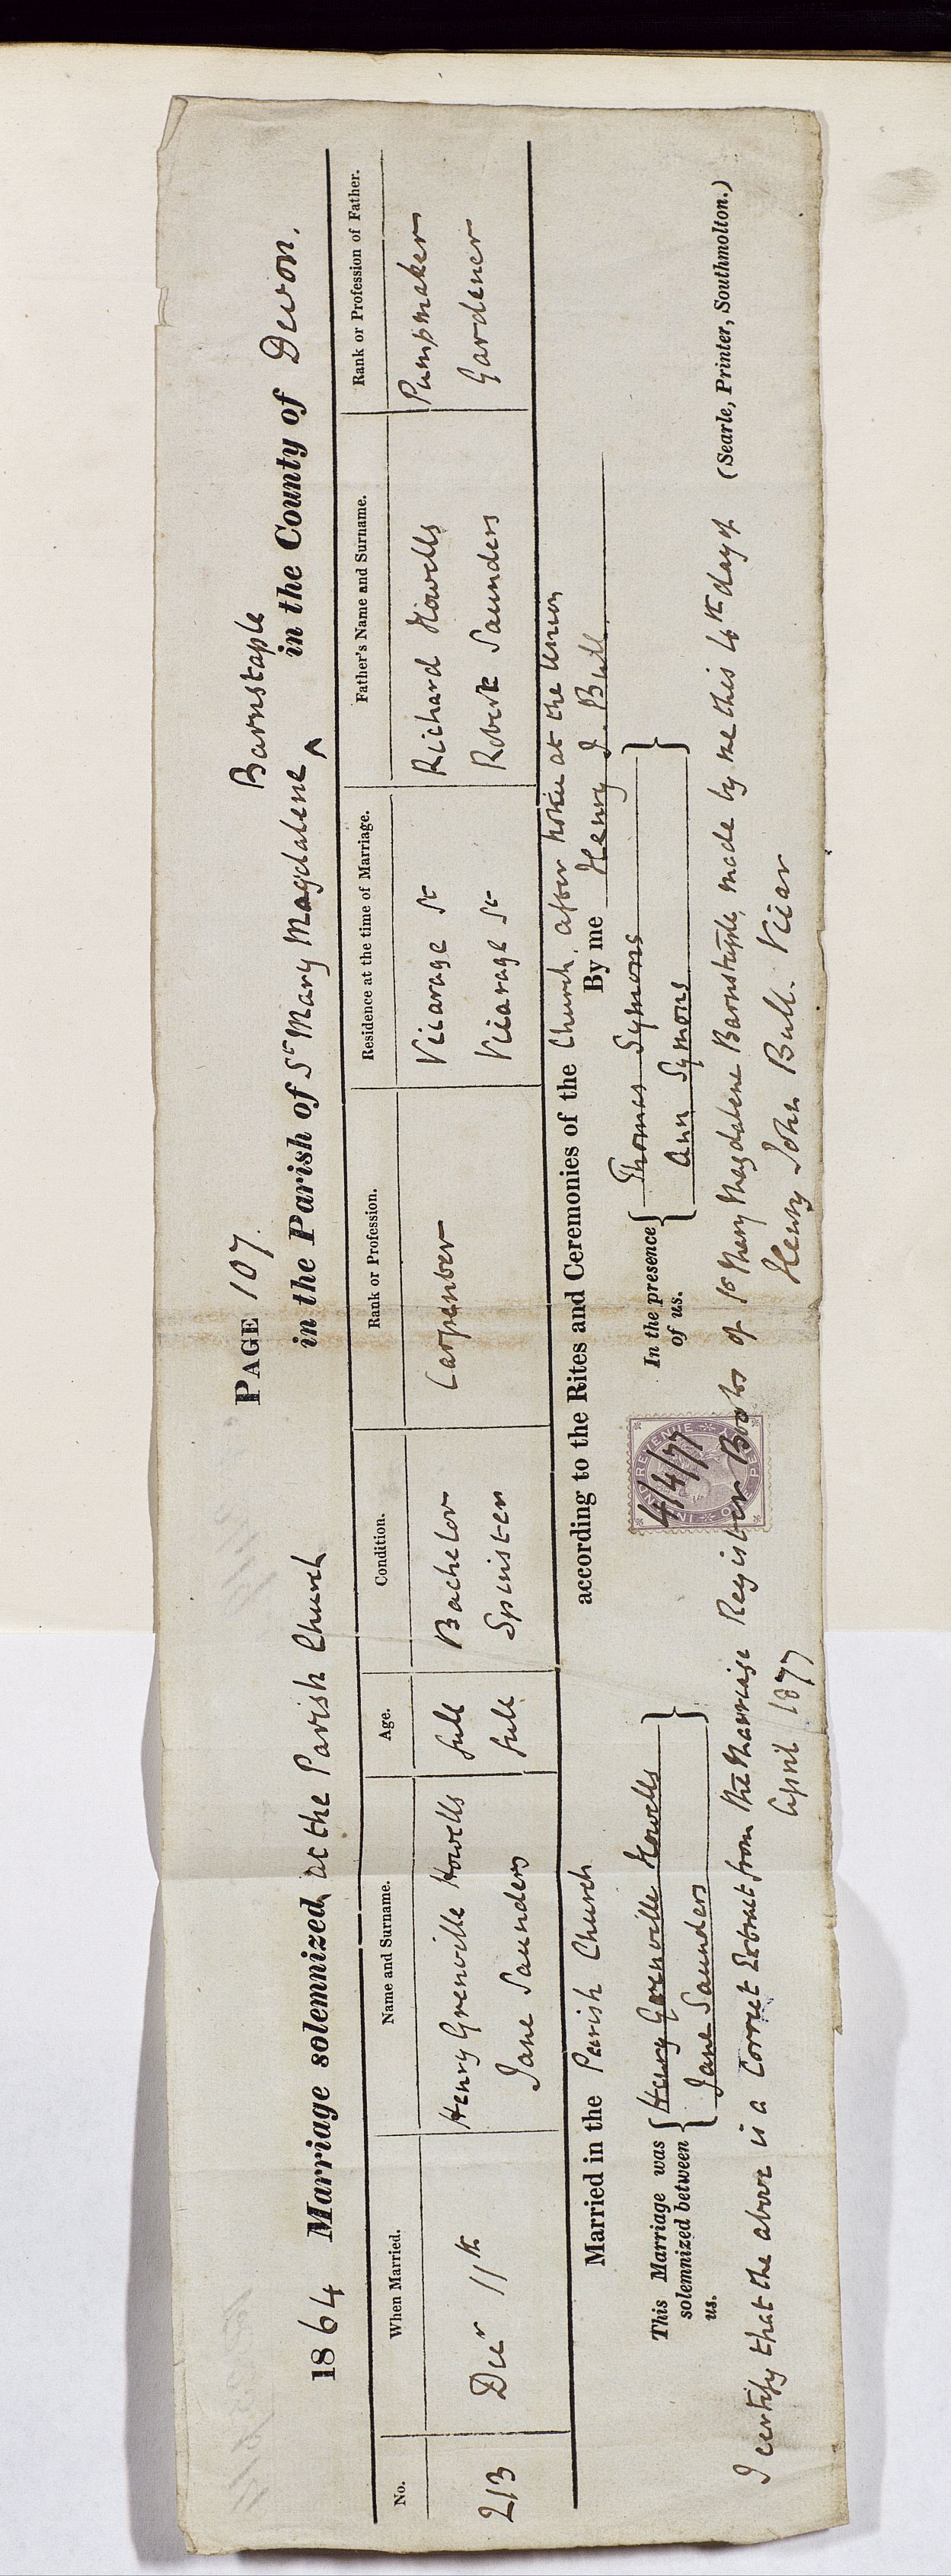 PAGE 107.
Barnstaple
1864 Marriage solemnized at the Parish Church in the Parish of St Mary Magdalene ^ in the County of Devon.
No. When Married. Name and Surname. Age. Condition. Rank or Profession. Residence at the time of Marriage. Father's Name and Surname. Rank or Profession of Father.
213 Decr 11th Henry Grenville Howells full Bachelor Carpenter Vicarage St Richard Howells Pumpmaker
Jane Saunders full Spinster Vicarage St Robert Saunders Gardener
Married in the Parish Church according to the Rites and Ceremonies of the Church, after notice at the Union
By me Henry J. Bull.
This Marriage was solemnized between us. { Henry Grenville Howells
Jane Saunders }
In the presence of us. { Thomas Symons
Ann Symons }
INLAND REVENUE ONE PENNY
4/4/77
I certify that the above is a Correct Extract from the Marriage Register Books of St Mary Magdalene Barnstaple, made by me this 4th day of
April 1877 Henry John Bull. Vicar
(Searle, Printer, Southmolton.)